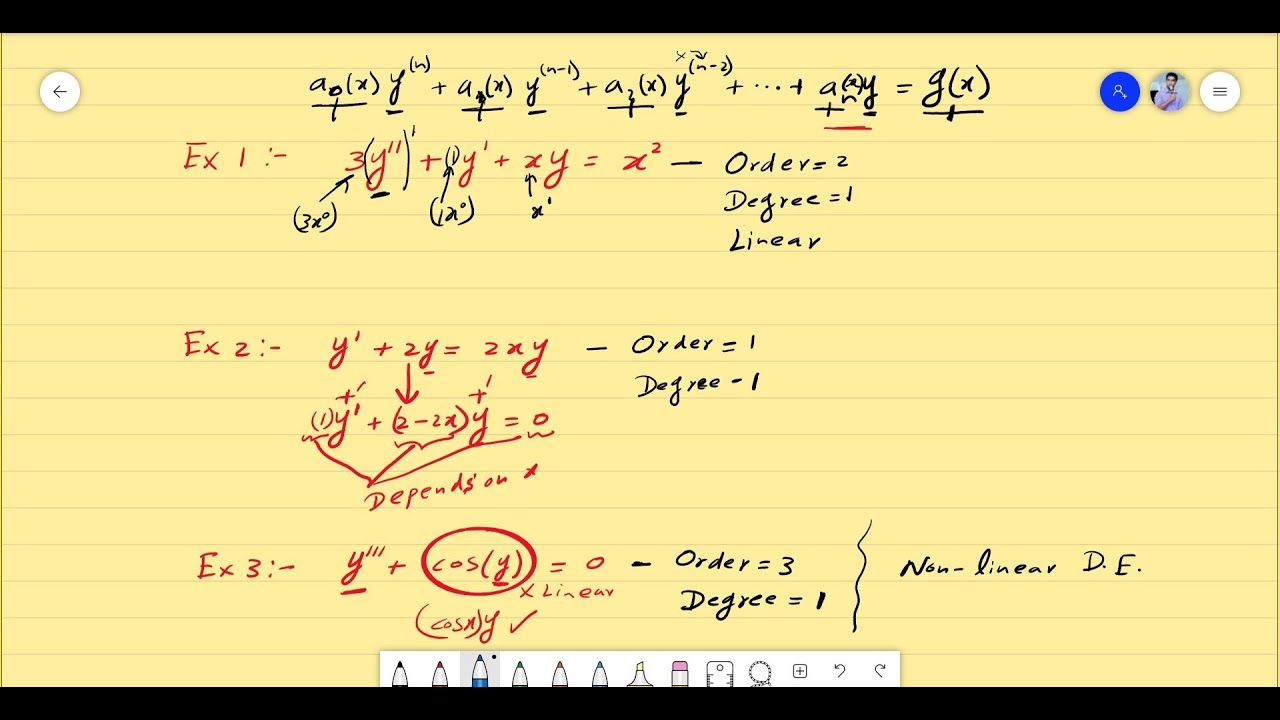 a₀(x) y⁽ⁿ⁾ + a₁(x) y⁽ⁿ⁻¹⁾ + a₂(x) y⁽ⁿ⁻²⁾ + ... + aₙ(x) y = g(x)
Ex 1 :- 3(y'')' + (1)y' + xy = x² — Order = 2
(3x⁰) (1x⁰) x' Degree = 1
Linear
Ex 2 :- y' + 2y = 2xy — Order = 1
Degree - 1
(1)y' + (2-2x)y = 0
Depends on x
Ex 3 :- y''' + cos(y) = 0 — Order = 3 Non-linear D.E.
x Linear Degree = 1
(cosx)y ✓